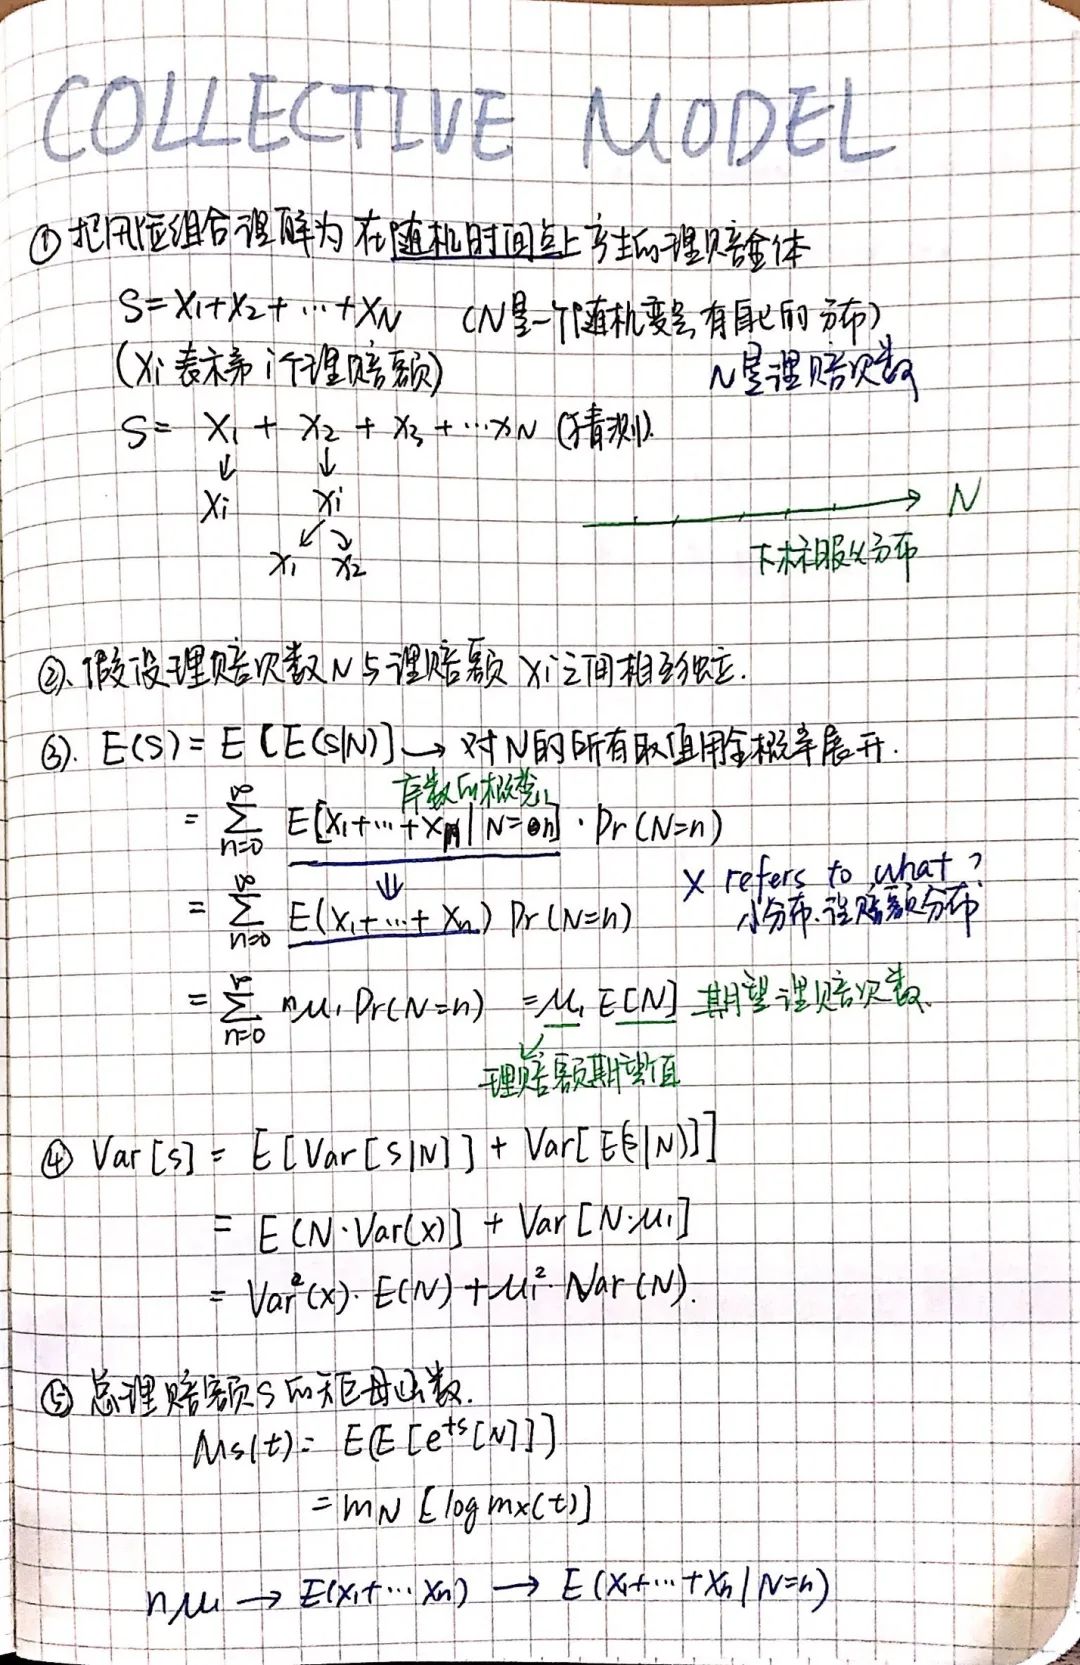 COLLECTIVE MODEL
① 把风险组合理解为在随机时间点上产生的理赔全体
S=X₁+X₂+…+X_N (N是一个随机变量,有自己的分布)
(Xi 表示第i个理赔额) N是理赔次数
S= X₁ + X₂ + X₃ +…X_N (猜测).
↓ ↓
Xi Xi
↙ ↘
X₁ X₂
→ N
下标服从分布
②、假设理赔次数N与理赔额Xi之间相互独立.
③. E(S)=E[E(S|N)] → 对N的所有取值用全概率展开.
= ∑_{n=0}^{∞} E[X₁+…+X_n|N=n]·Pr(N=n)
⇓
X refers to what?
= ∑_{n=0}^{∞} E(X₁+…+X_n) Pr(N=n)
小分布.理赔额分布
= ∑_{n=0}^{∞} nμ₁ Pr(N=n) =μ₁ E[N] 期望理赔次数.
理赔额期望值
④ Var[S] = E[Var[S|N]] + Var[E(S|N)]]
= E(N·Var(x)] + Var[N·μ₁]
= Var²(x)·E(N)+μ₁²·Var(N).
⑤ 总理赔额S的矩母函数.
Ms(t)= E(E[e^{ts}[N]])
=m_N [log mx(t)]
nμ₁ → E(X₁+…Xn) → E(X₁+…+Xn|N=n)